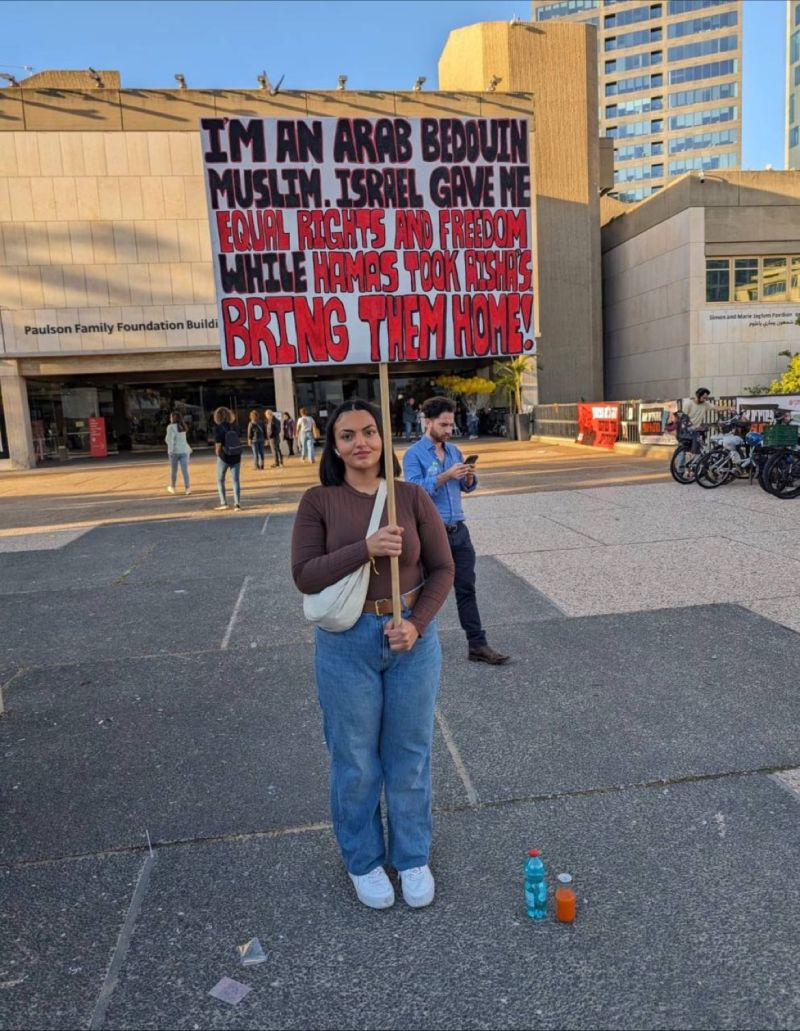 I'M AN ARAB BEDOUIN
MUSLIM. ISRAEL GAVE ME
EQUAL RIGHTS AND FREEDOM
WHILE HAMAS TOOK AISHA'S.
BRING THEM HOME!
Paulson Family Foundation Buildi
Simon and Marie Jaglom Pavilion